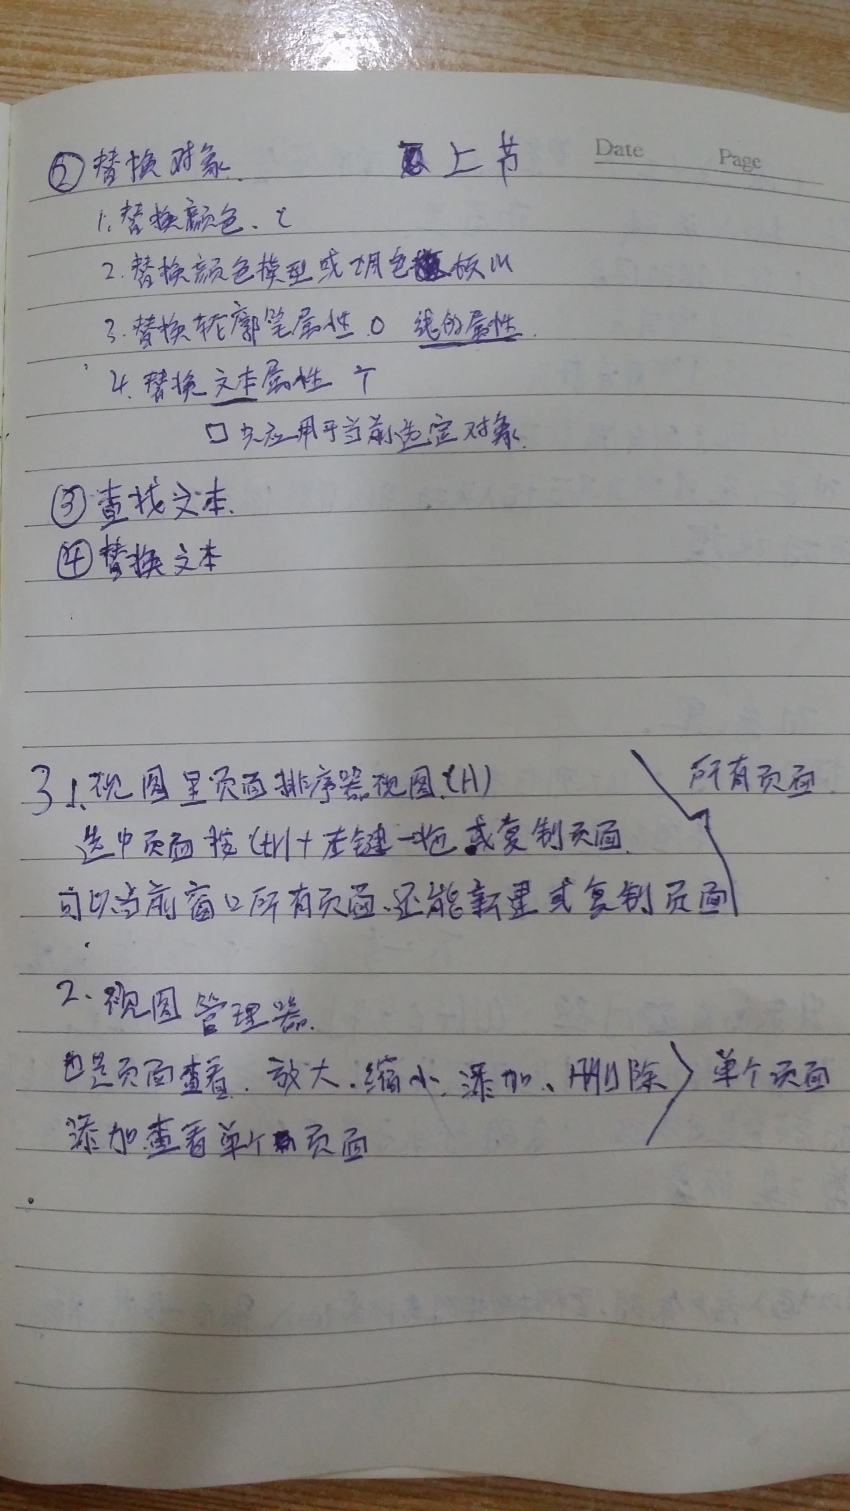 ② 替换对象. 上节
Date Page
1. 替换颜色. C
2. 替换颜色模型或调色板 M
3. 替换轮廓笔属性 O 线的属性.
4. 替换文本属性 T
□ 只应用于当前选定对象.
③ 查找文本.
④ 替换文本
3 1. 视图里页面排序器视图.(A) 所有页面.
选中页面按Ctrl+左键一拖 或复制页面.
可以当前窗口所有页面.还能新建或复制页面
2. 视图管理器.
也是页面查看.放大.缩小.添加、删除 单个页面
添加查看单个页面